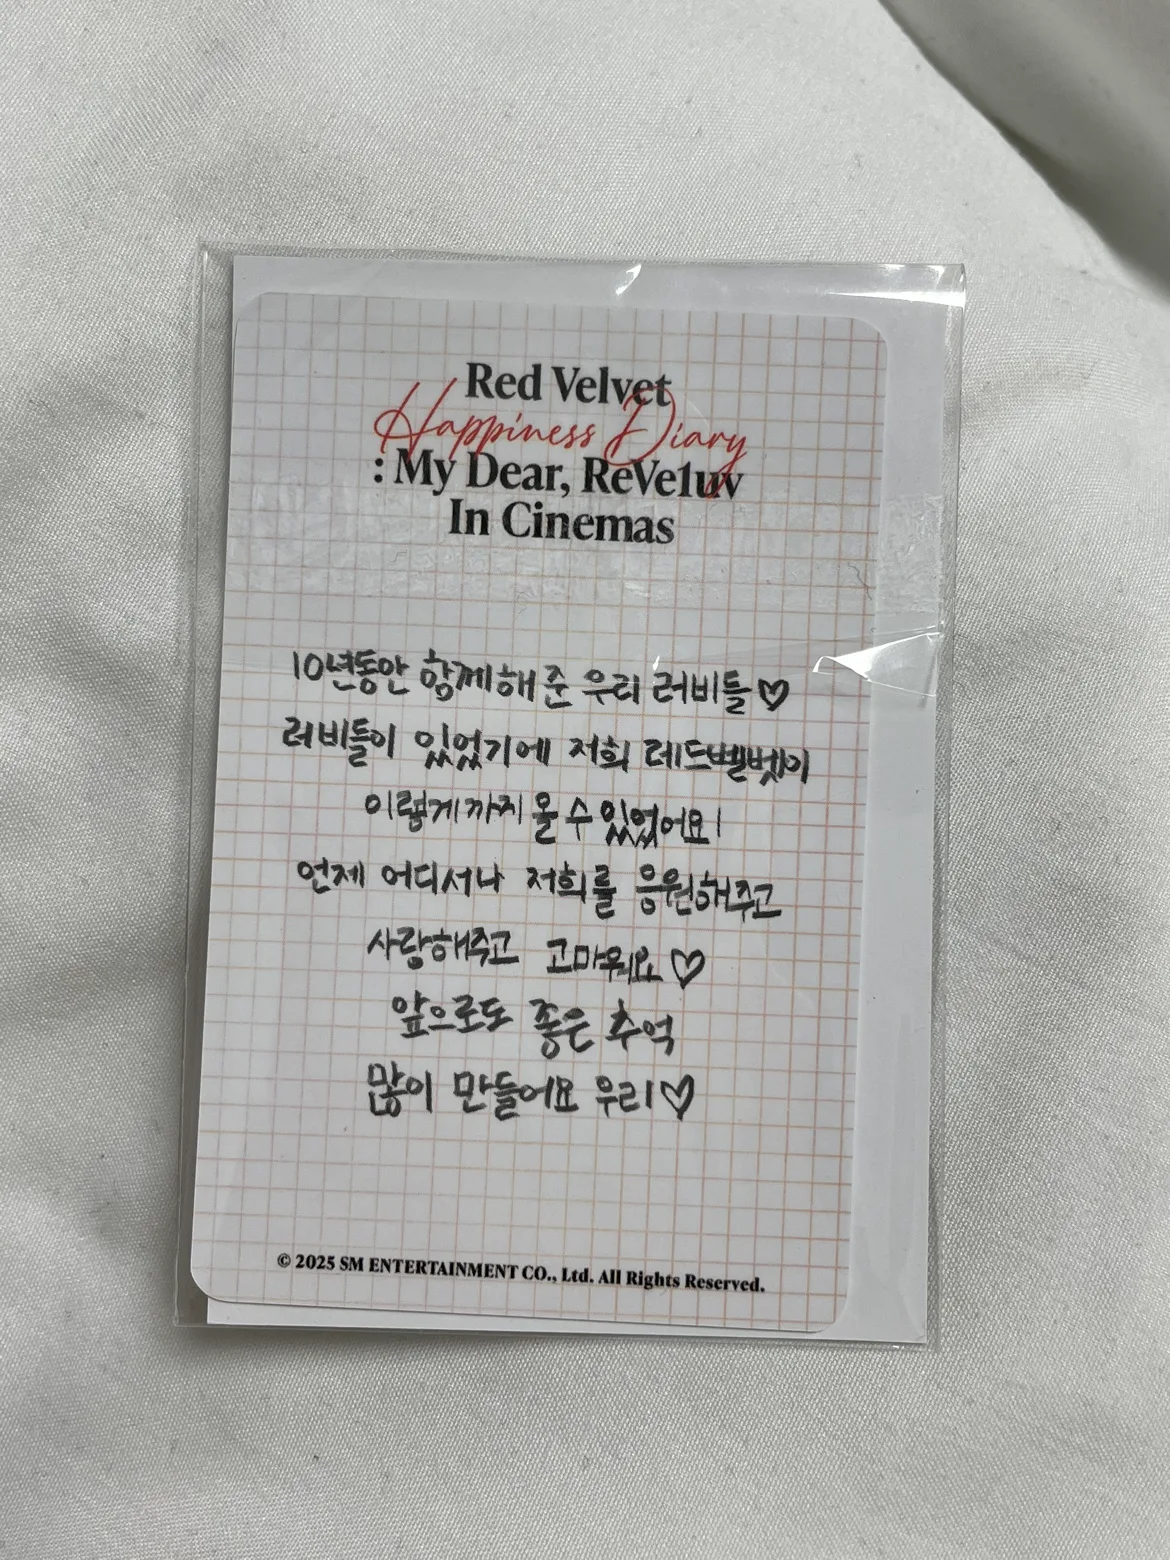 Red Velvet
Happiness Diary
: My Dear, ReVe1uv
In Cinemas
10년동안 함께해 준 우리 러비들♡
러비들이 있었기에 저희 레드벨벳이
이렇게까지 올 수 있었어요!
언제 어디서나 저희를 응원해주고
사랑해주고 고마워요♡
앞으로도 좋은 추억
많이 만들어요 우리♡
© 2025 SM ENTERTAINMENT CO., Ltd. All Rights Reserved.